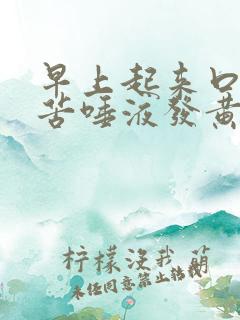 早上起来口
苦唾液發黄
柠檬沒我萌
未经同意禁止转载